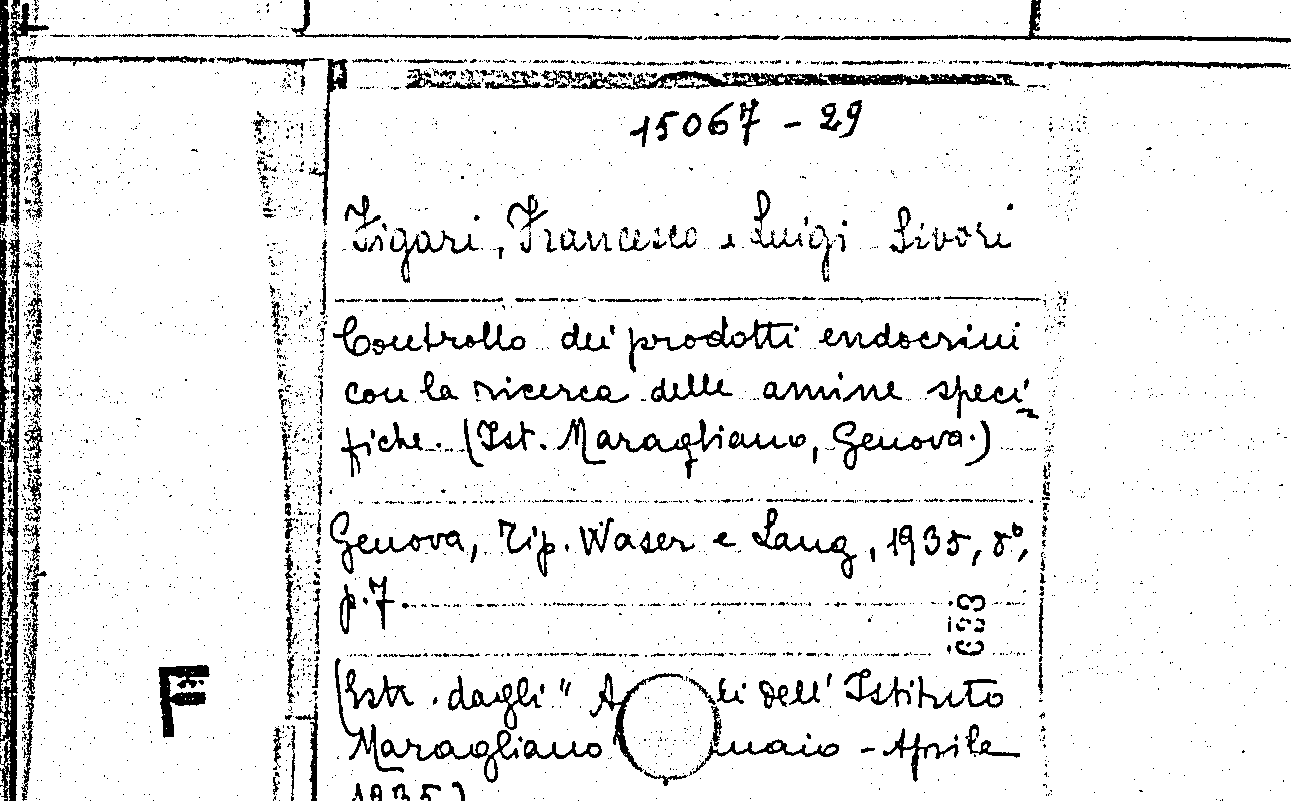 15067 - 29
Figari, Francesco e Luigi Sivori
Controllo dei prodotti endocrini
con la ricerca delle amine speci-
fiche. (Ist. Maragliano, Genova.)
Genova, Tip. Waser e Lang, 1935, 8°,
p. 7.
(Estr. dagli " A li dell' Istituto
Maragliano naio - Aprile
1935)
F